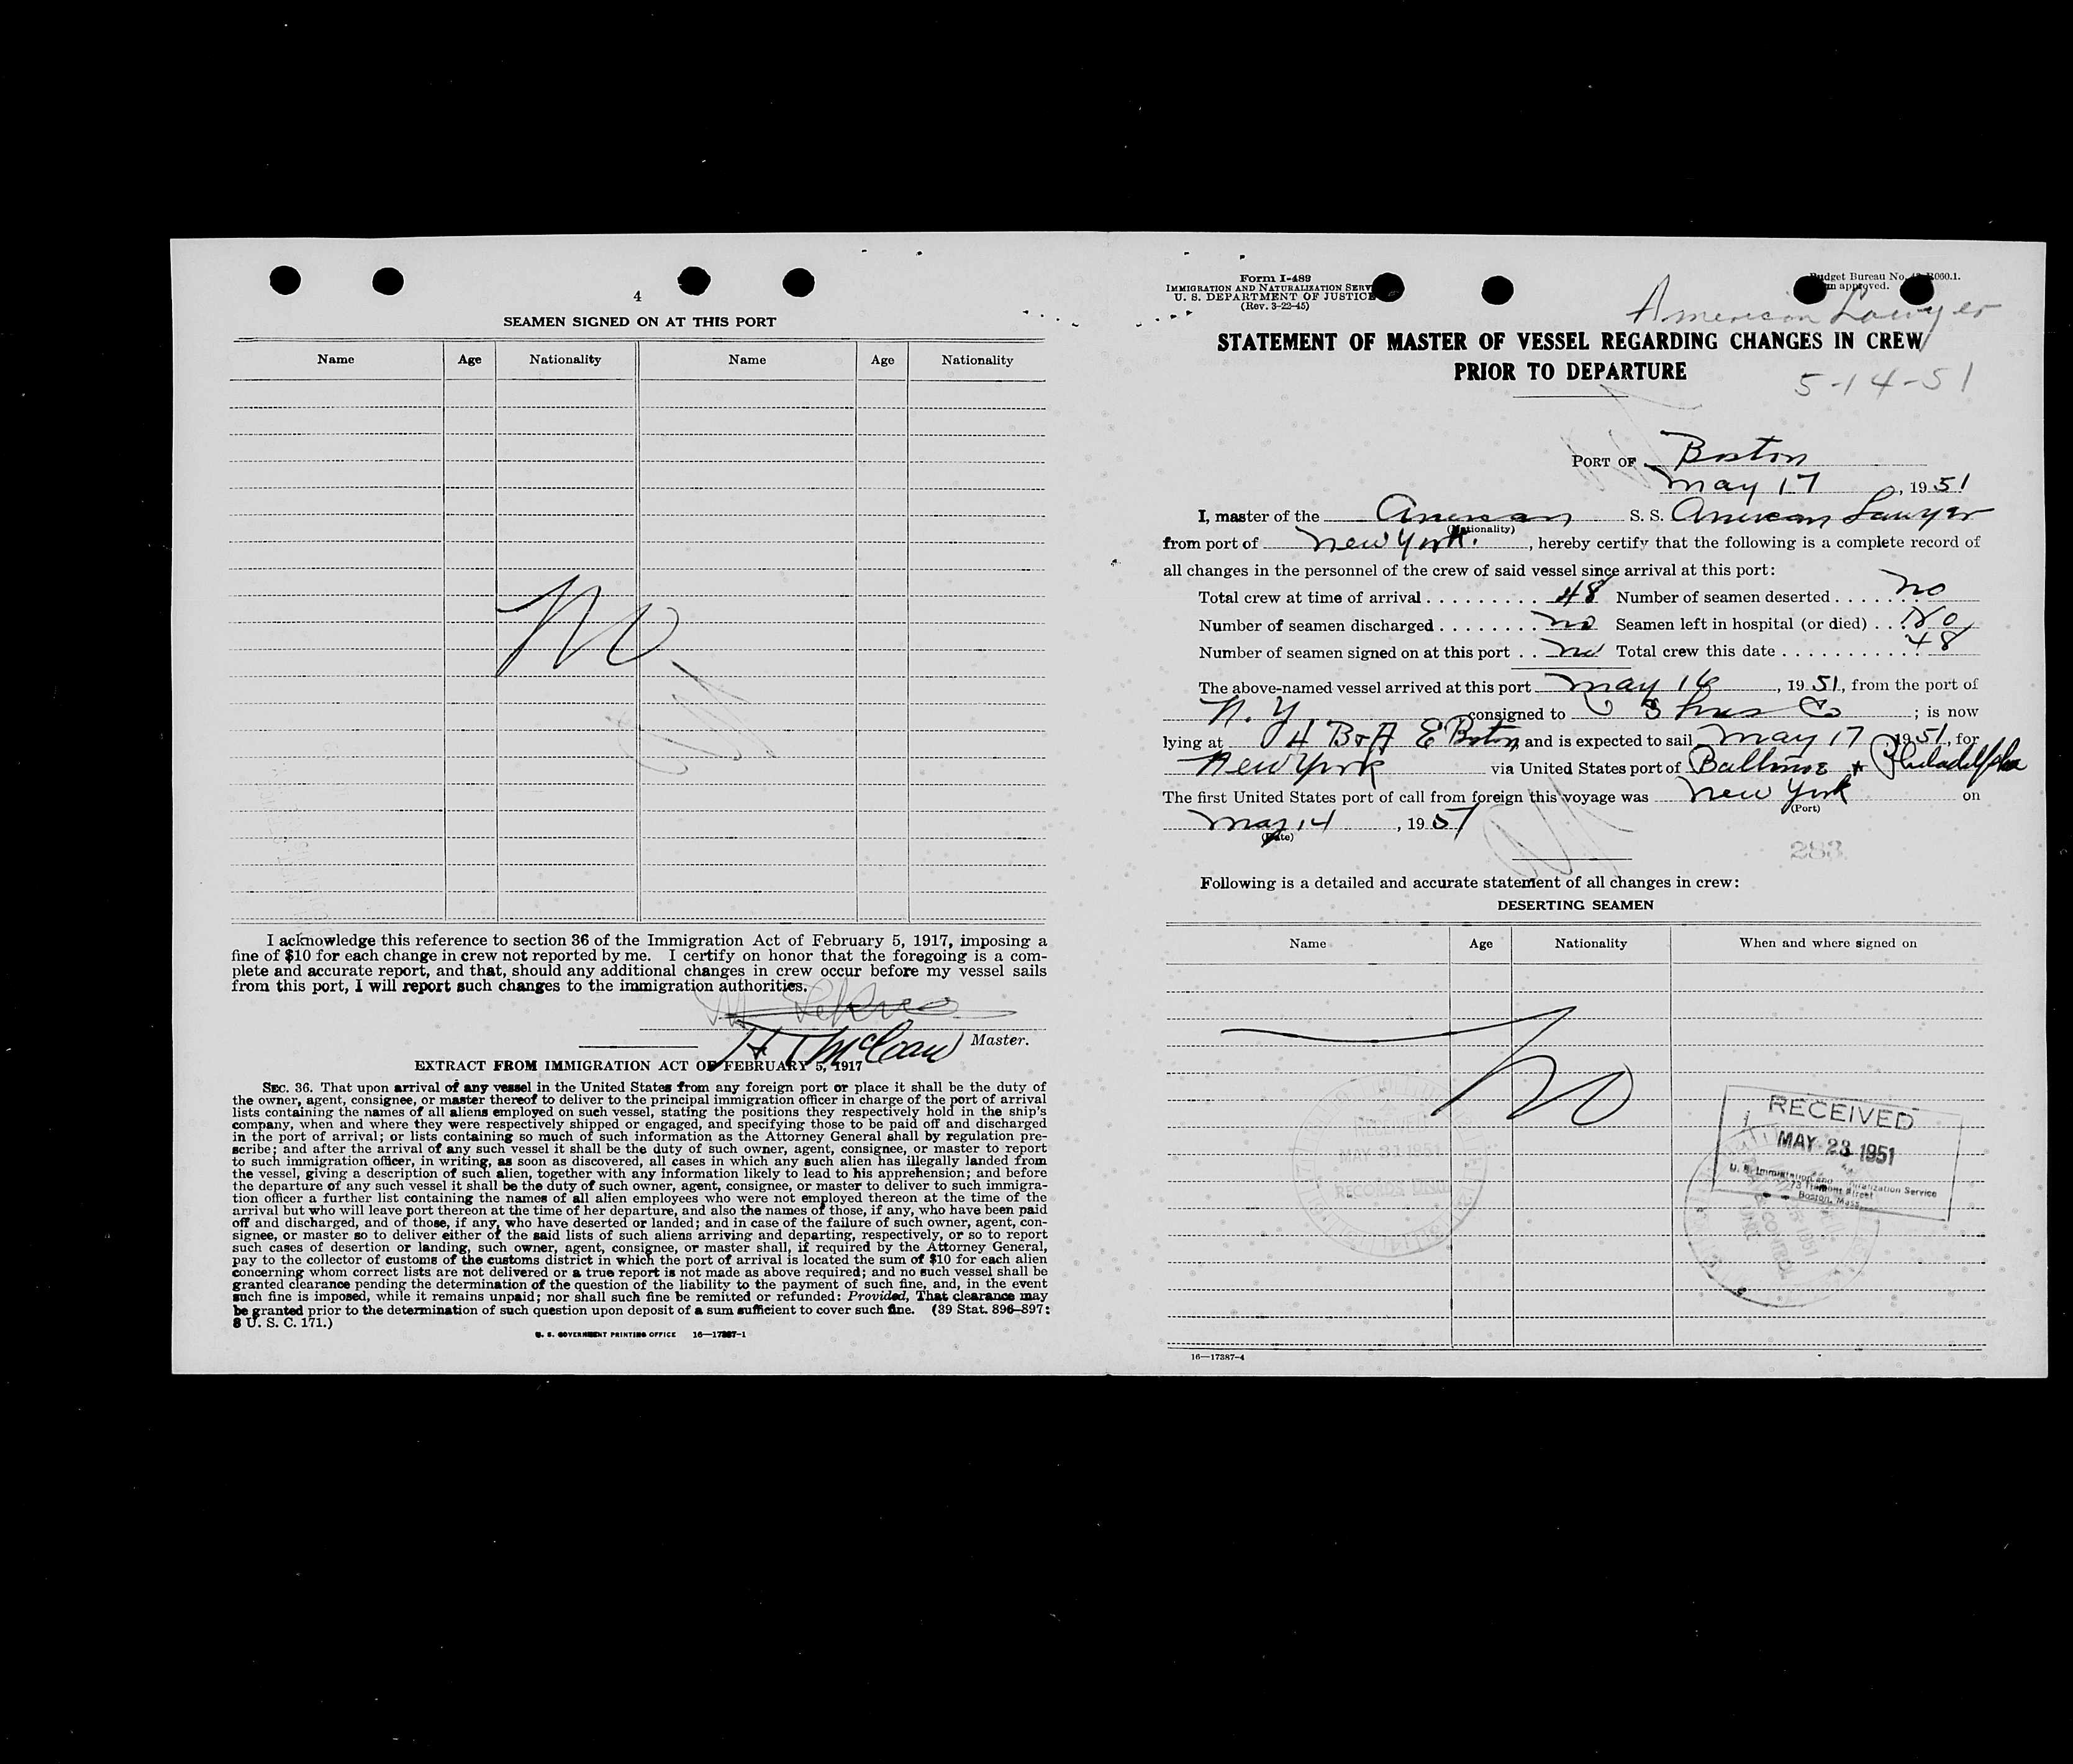 4
SEAMEN SIGNED ON AT THIS PORT
Name Age Nationality Name Age Nationality
No
I acknowledge this reference to section 36 of the Immigration Act of February 5, 1917, imposing a
fine of $10 for each change in crew not reported by me. I certify on honor that the foregoing is a com-
plete and accurate report, and that, should any additional changes in crew occur before my vessel sails
from this port, I will report such changes to the immigration authorities.
Master.
EXTRACT FROM IMMIGRATION ACT OF FEBRUARY 5, 1917
SEC. 36. That upon arrival of any vessel in the United States from any foreign port or place it shall be the duty of
the owner, agent, consignee, or master thereof to deliver to the principal immigration officer in charge of the port of arrival
lists containing the names of all aliens employed on such vessel, stating the positions they respectively hold in the ship's
company, when and where they were respectively shipped or engaged, and specifying those to be paid off and discharged
in the port of arrival; or lists containing so much of such information as the Attorney General shall by regulation pre-
scribe; and after the arrival of any such vessel it shall be the duty of such owner, agent, consignee, or master to report
to such immigration officer, in writing, as soon as discovered, all cases in which any such alien has illegally landed from
the vessel, giving a description of such alien, together with any information likely to lead to his apprehension; and before
the departure of any such vessel it shall be the duty of such owner, agent, consignee, or master to deliver to such immigra-
tion officer a further list containing the names of all alien employees who were not employed thereon at the time of the
arrival but who will leave port thereon at the time of her departure, and also the names of those, if any, who have been paid
off and discharged, and of those, if any, who have deserted or landed; and in case of the failure of such owner, agent, con-
signee, or master so to deliver either of the said lists of such aliens arriving and departing, respectively, or so to report
such cases of desertion or landing, such owner, agent, consignee, or master shall, if required by the Attorney General,
pay to the collector of customs of the customs district in which the port of arrival is located the sum of $10 for each alien
concerning whom correct lists are not delivered or a true report is not made as above required; and no such vessel shall be
granted clearance pending the determination of the question of the liability to the payment of such fine, and, in the event
such fine is imposed, while it remains unpaid; nor shall such fine be remitted or refunded: Provided, That clearance may
be granted prior to the determination of such question upon deposit of a sum sufficient to cover such fine. (39 Stat. 896-897;
8 U. S. C. 171.)
U. S. GOVERNMENT PRINTING OFFICE 16—17387-1
Form I-489
IMMIGRATION AND NATURALIZATION SERV
U. S. DEPARTMENT OF JUSTICE
(Rev. 3-22-45)
Budget Bureau No. R060.1.
approved.
American Lawyer
STATEMENT OF MASTER OF VESSEL REGARDING CHANGES IN CREW
PRIOR TO DEPARTURE
5-14-51
PORT OF Boston
May 17, 1951
I, master of the American S. S. American Lawyer
(Nationality)
from port of New York, hereby certify that the following is a complete record of
all changes in the personnel of the crew of said vessel since arrival at this port:
Total crew at time of arrival 48 Number of seamen deserted no
Number of seamen discharged no Seamen left in hospital (or died) No
Number of seamen signed on at this port no Total crew this date 48
The above-named vessel arrived at this port May 16, 1951, from the port of
N. Y. consigned to U S Lines Co; is now
lying at B&A E Boston and is expected to sail May 17 1951, for
New York via United States port of Baltimore + Philadelphia
The first United States port of call from foreign this voyage was New York on
(Port)
May 14, 1951
(Date)
283
Following is a detailed and accurate statement of all changes in crew:
DESERTING SEAMEN
Name Age Nationality When and where signed on
No
RECEIVED
MAY 23 1951
RECEIVED
MAY 23 1951
U. S. Immigration and Naturalization Service
73 Tremont Street
Boston, Mass.
16—17387-4